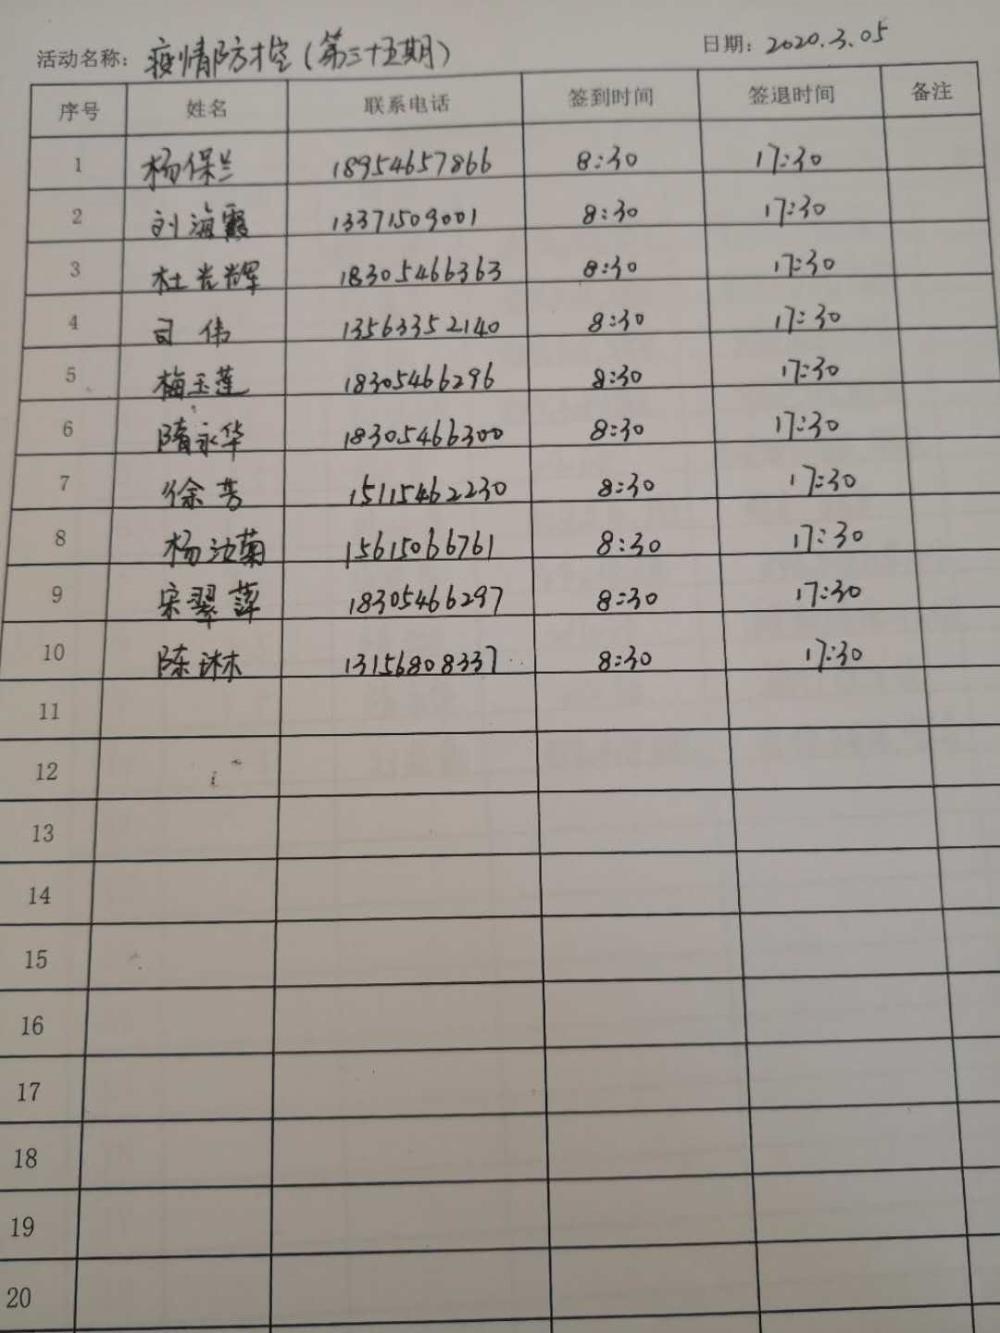 活动名称：疫情防控（第三十五期） 日期：2020.3.05
序号 姓名 联系电话 签到时间 签退时间 备注
1 杨保兰 18954657866 8:30 17:30
2 刘海霞 13371509001 8:30 17:30
3 杜光辉 18305466363 8:30 17:30
4 司伟 13563352140 8:30 17:30
5 梅玉莲 18305466296 8:30 17:30
6 隋永华 18305466300 8:30 17:30
7 徐芳 15115462230 8:30 17:30
8 杨 菊 15615066761 8:30 17:30
9 宋翠萍 18305466297 8:30 17:30
10 陈琳 13156808337 8:30 17:30
11
12
13
14
15
16
17
18
19
20